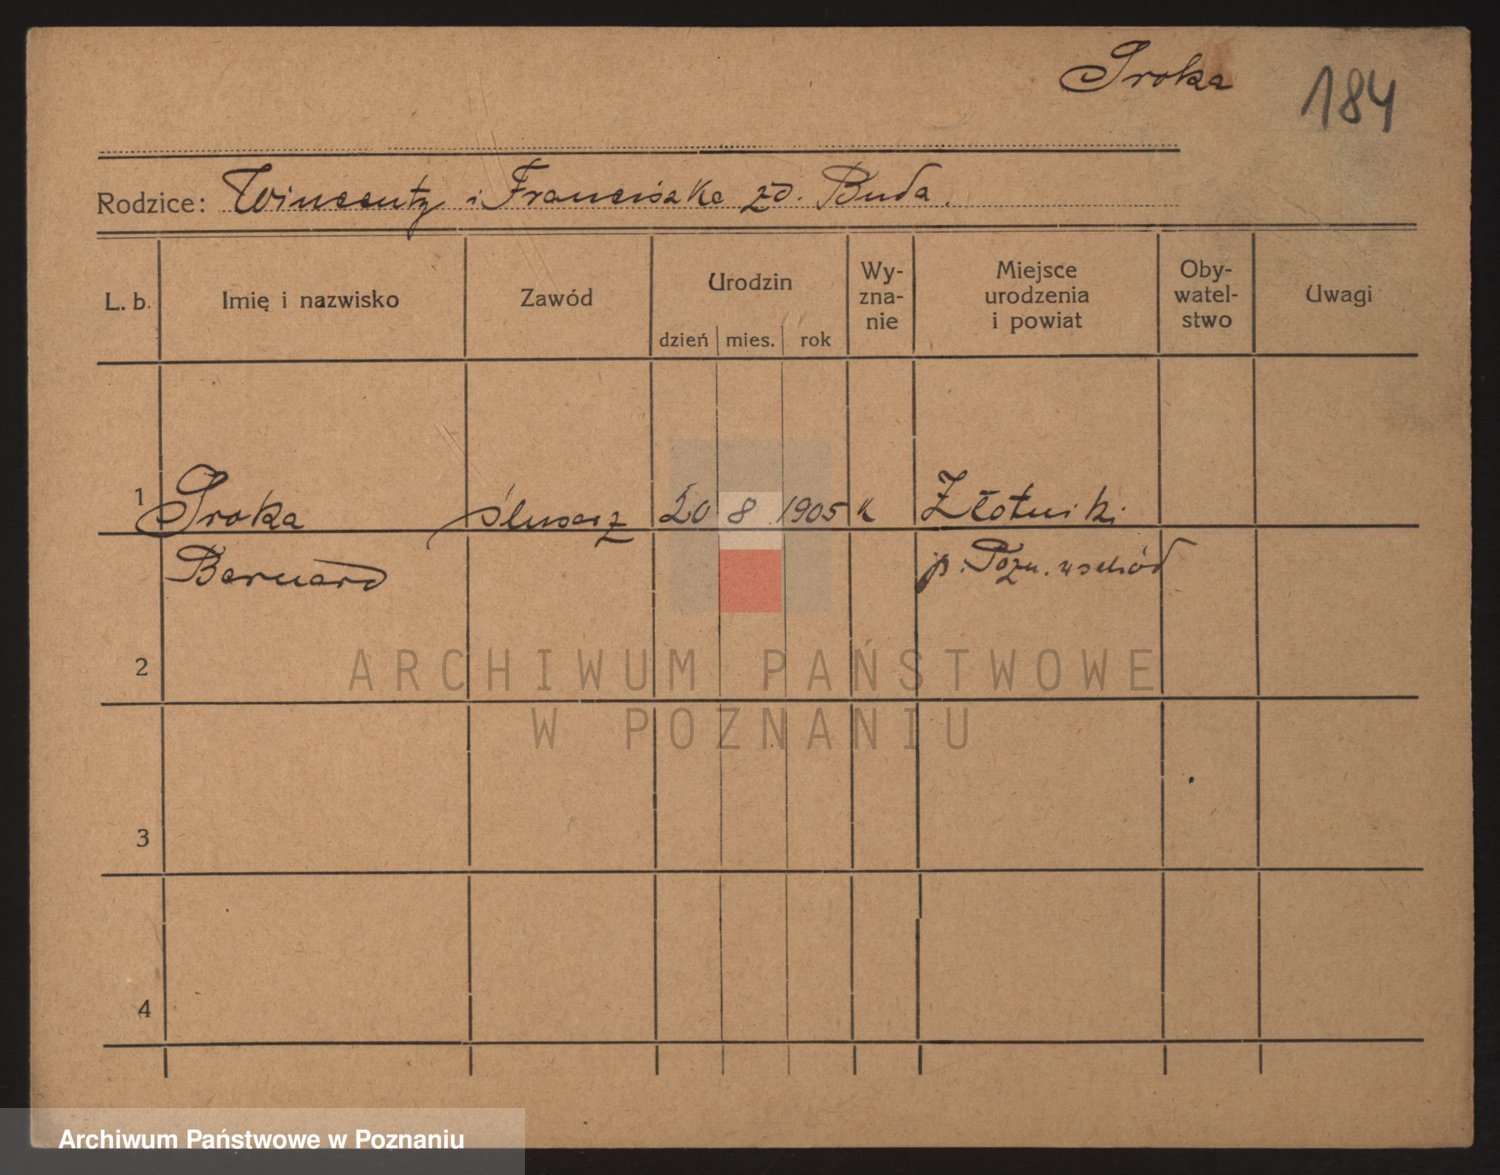 Sroka
184
Rodzice: Wincenty i Franciszka zd. Buda.
L. b. Imię i nazwisko Zawód Urodzin dzień mies. rok Wy-zna-nie Miejsce urodzenia i powiat Oby-watel-stwo Uwagi
1 Sroka ślusarz 20 8 1905 k Złotniki
Bernard p. Pozn. wschód
2
ARCHIWUM PAŃSTWOWE
W POZNANIU
3
4
Archiwum Państwowe w Poznaniu